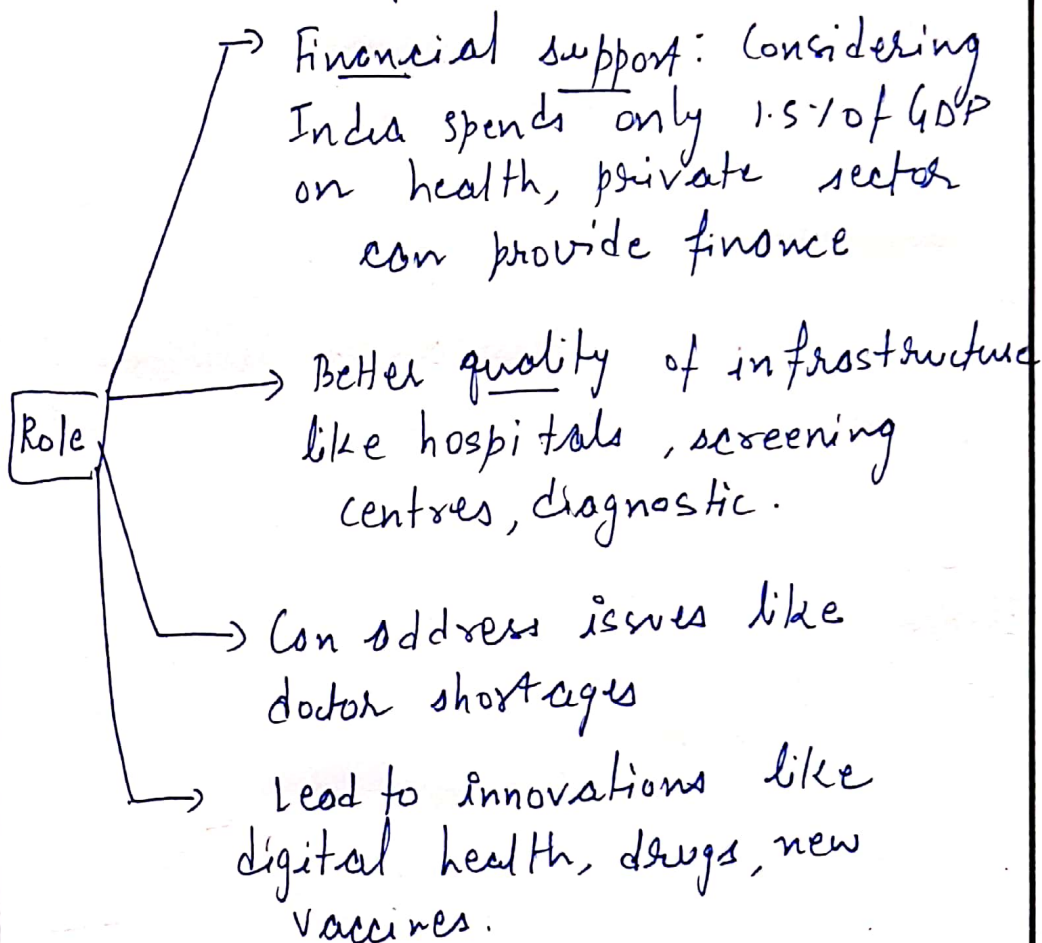 Financial support: Considering
India spends only 1.5% of GDP
on health, private sector
can provide finance
Better quality of infrastructure
Role
like hospitals, screening
centres, diagnostic.
Can address issues like
doctor shortages
Lead to innovations like
digital health, drugs, new
vaccines.